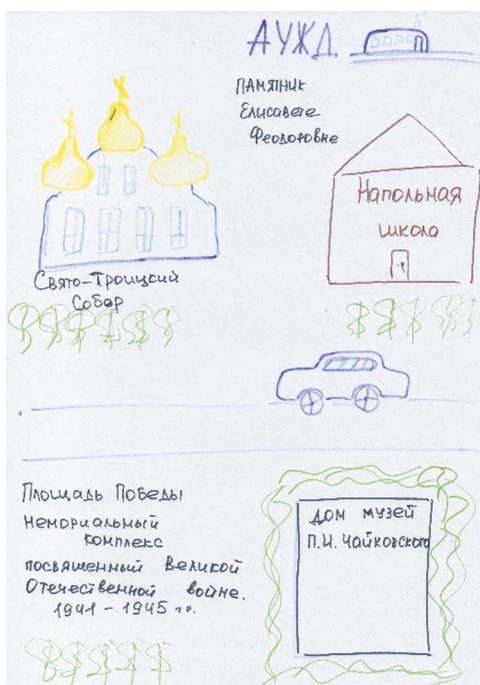 АУЖД.
ПАМЯТНИК
Елисавете
Феодоровне
Напольная
школа
Свято-Троицкий
Собор
Площадь Победы
Мемориальный
комплекс
посвященный Великой
Отечественной войне.
1941 - 1945 гг.
ДОМ МУЗЕЙ
П.И. Чайковского